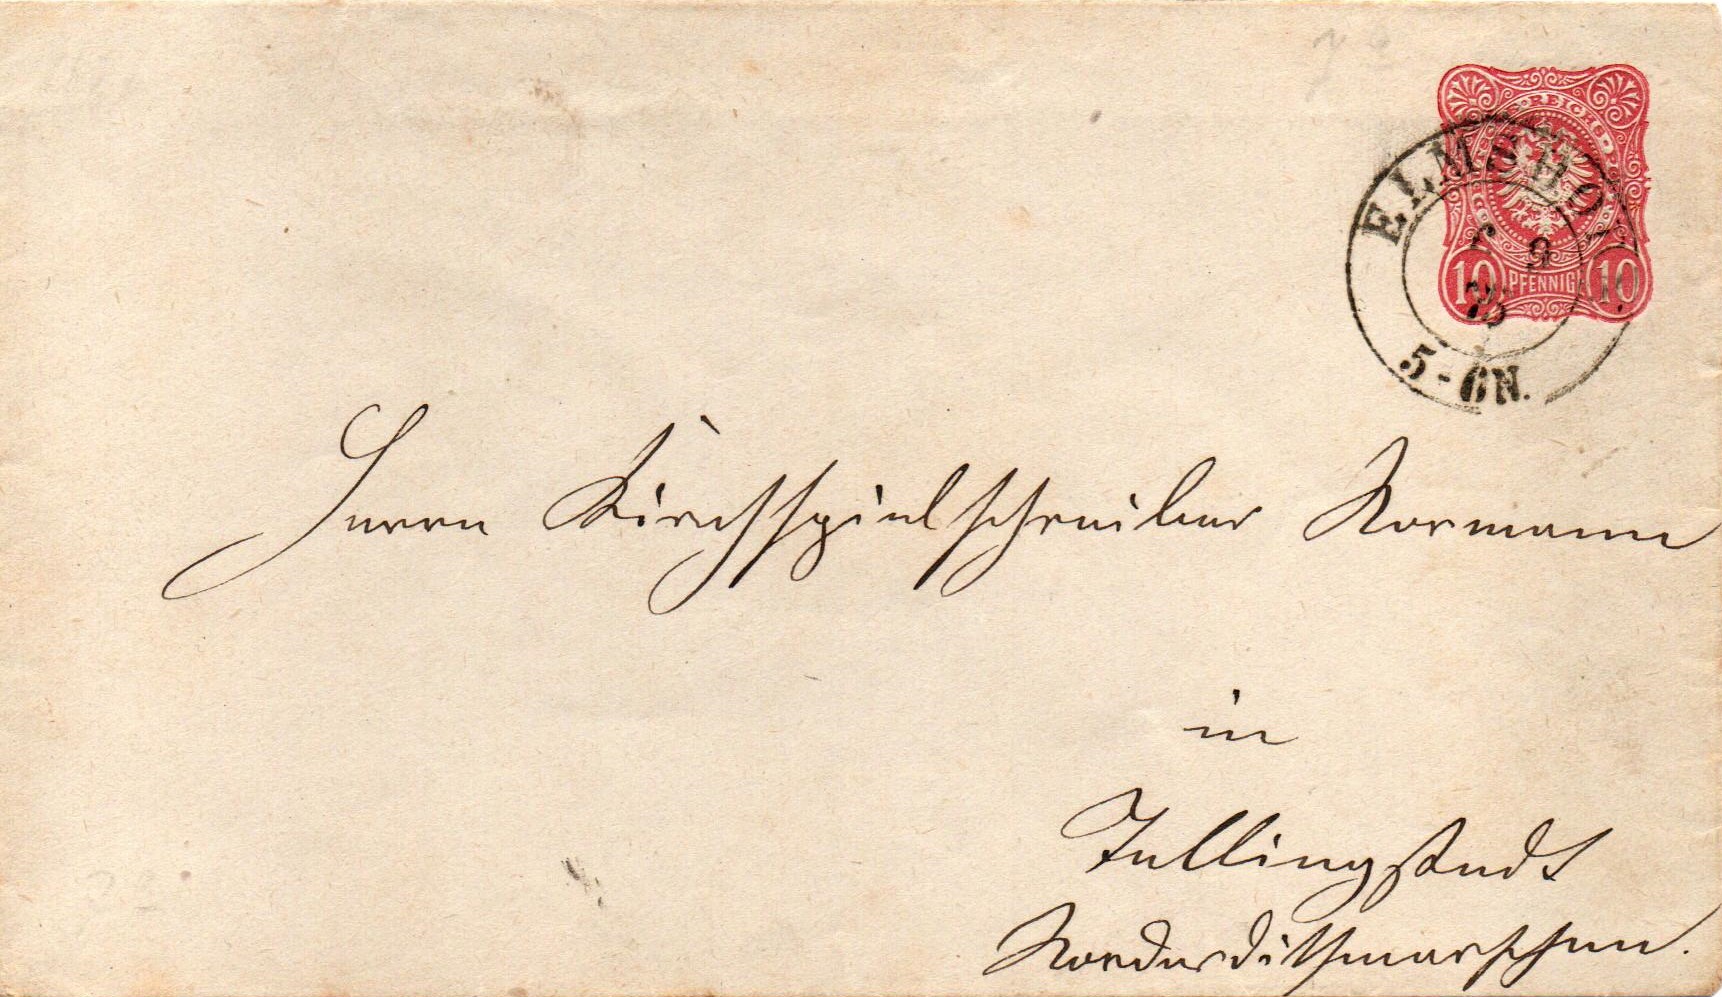 REICHS
ELMSHO
9
10 PFENNIG 10
5-6N.
Herrn Kirchspielschreiber Normann
in
Tellingstedt
Norderdithmarschen.